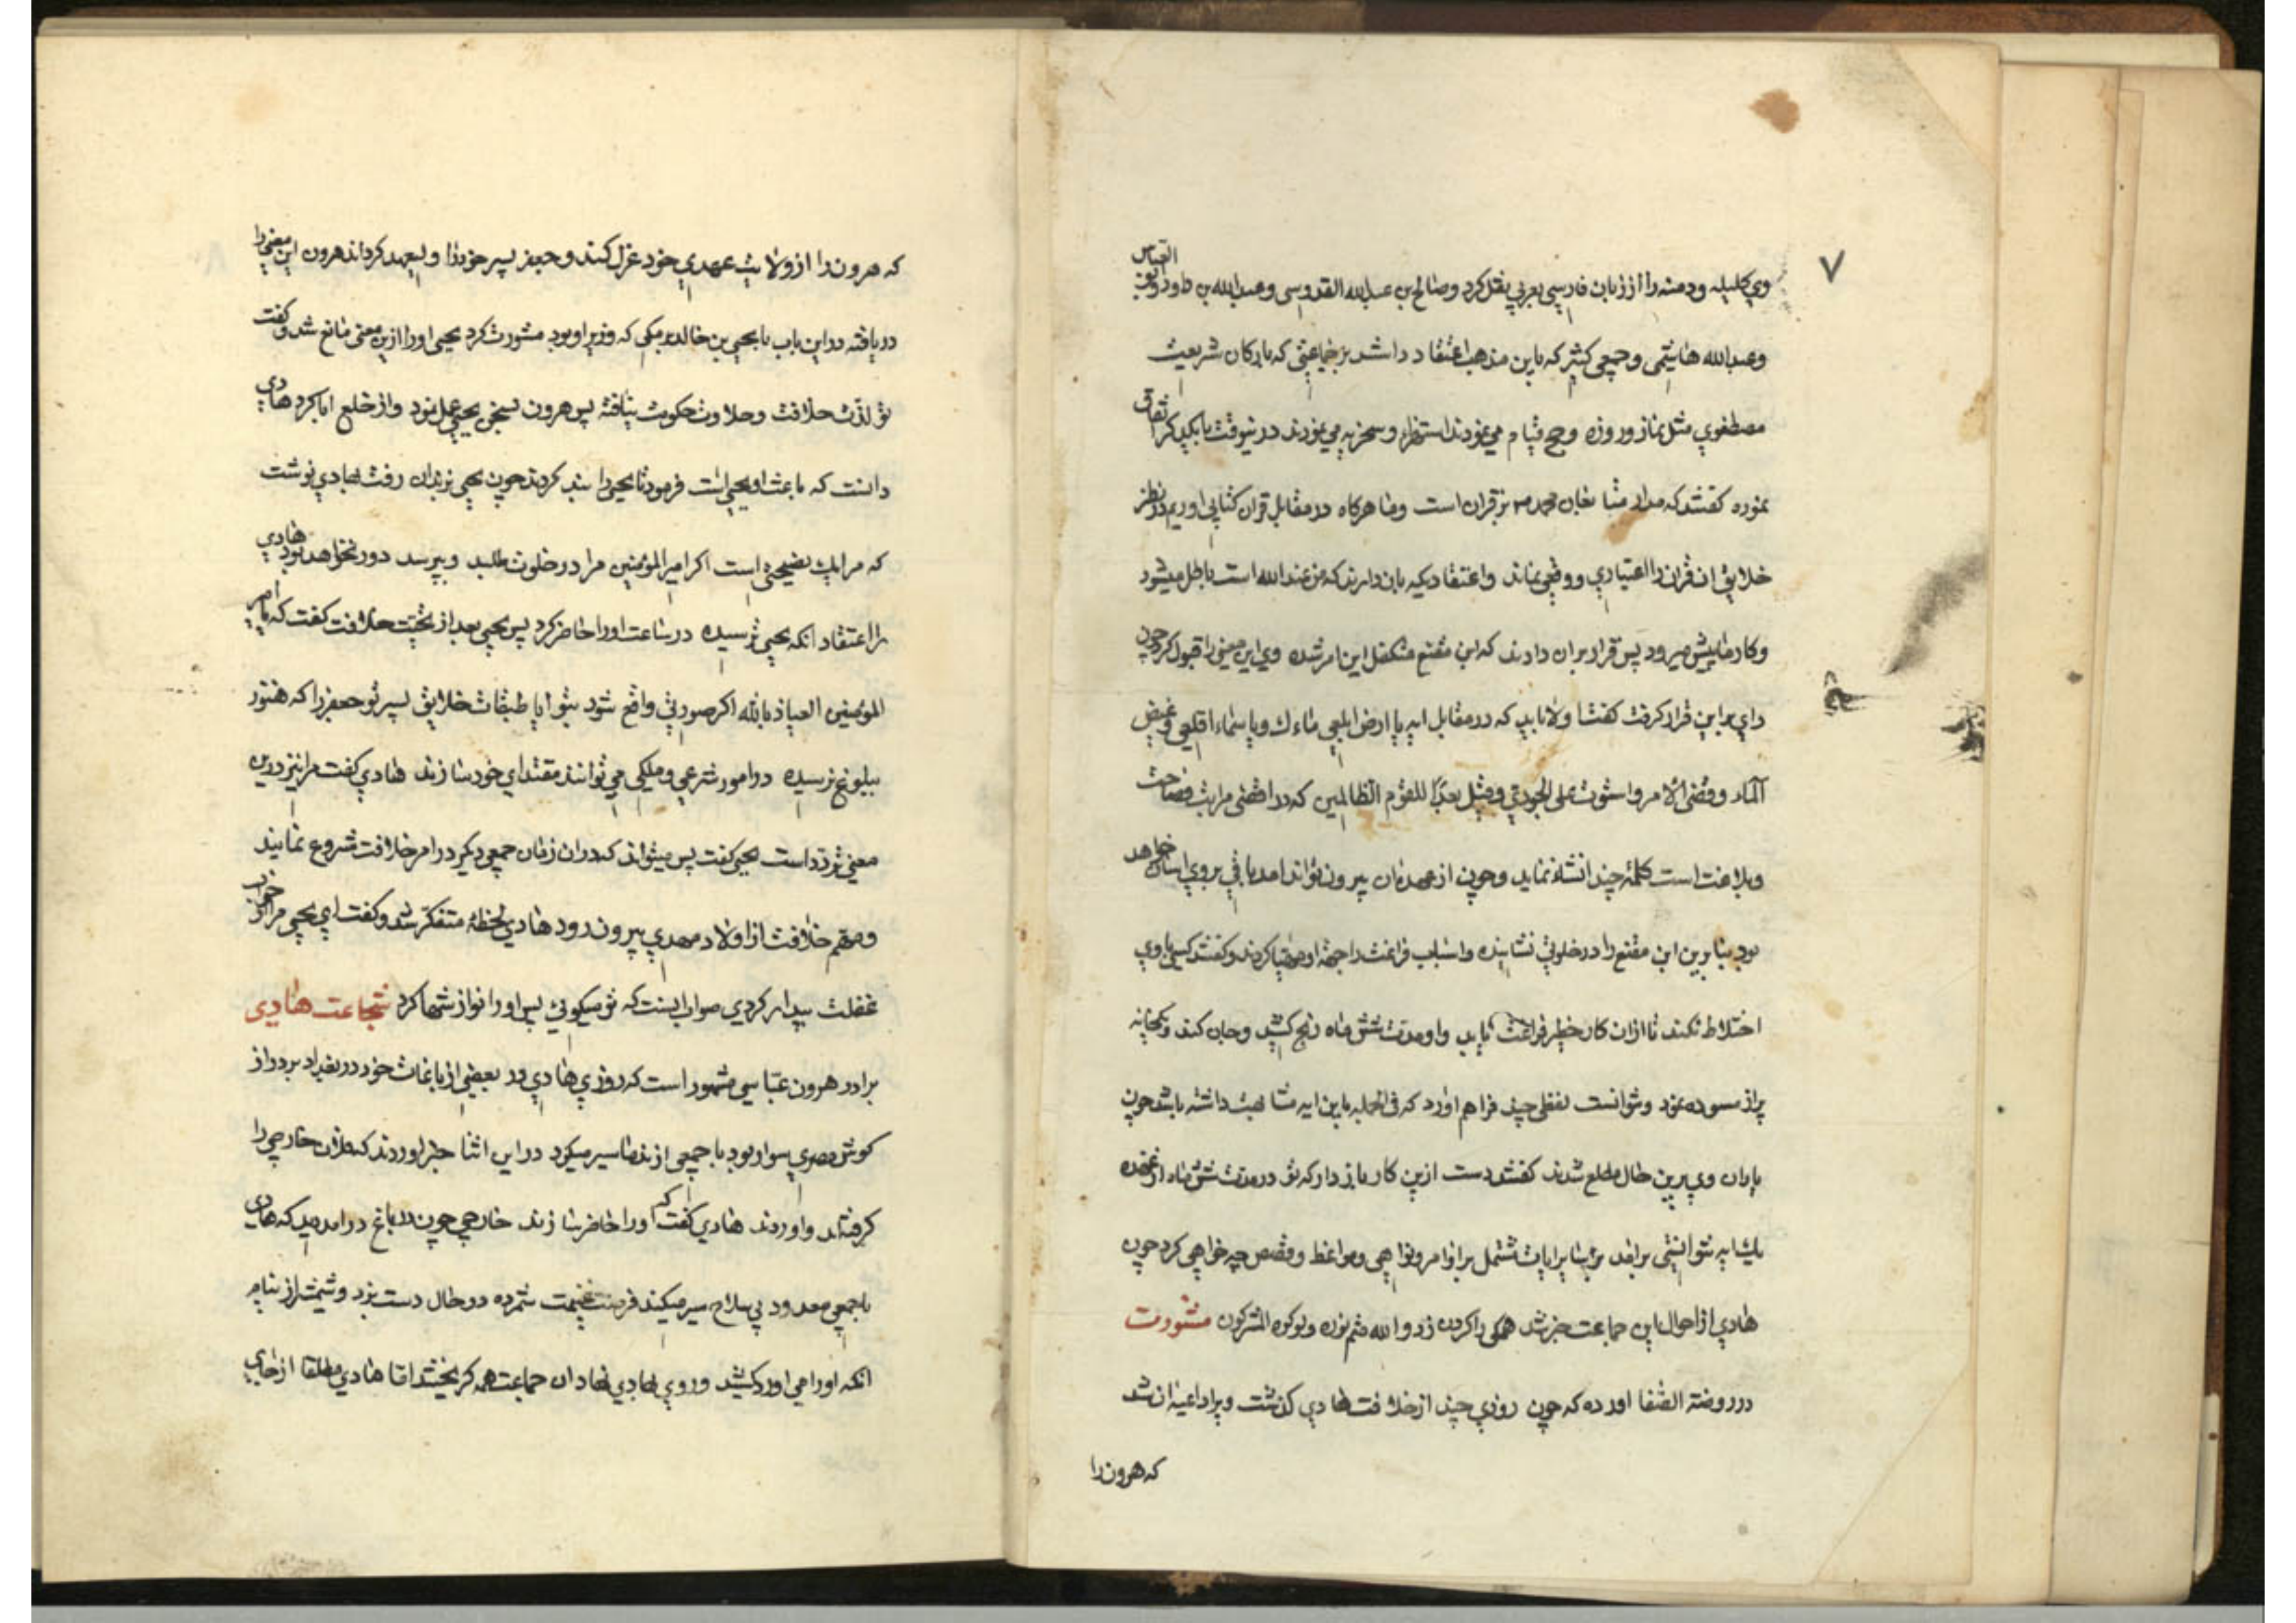 ۷
وی کلیله ودمنه را از زبان فارسی بعربی نقل کرد وصالح بن عبدالله القدوسی وعبدالله بن داود
وعبدالله هاشمی وجمعی کثیر که باین مذهب اعتقاد داشتند بر جماعتی که بارکان شریعت
مصطفوی مثل نماز وروزه وحج قیام می نمودند استهزا وسخریه می نمودند درینوقت با یکدیگر اتفاق
نموده گفتند که مدار متابعان محمد بر قران است وما هرگاه در مقابل قران کتابی اوریم در نظر
خلایق ان قران را اعتباری ووقعی نماند واعتقادیکه بان دارند که من عندالله است باطل میشود
وکار ما پیش میرود پس قرار بران دادند که ابن مقنع متکفل این امر شده وی این معنی را قبول کرد چون
رای بر این قرار گرفت گفتند اولا باید که در مقابل ایه یا ارض ابلعی ماءك ویا سماء اقلعی وغیض
الماء وقضی الامر واستوت علی الجودی وقیل بعدًا للقوم الظالمین که در اقصی مراتب فصاحت
وبلاغت است کلمهٔ چند انشاء نماید وچون از عهده ان بیرون تواند امد باقی بروی اسان خواهد
بود بنابرین ابن مقنع را در خلوتی نشانیده واسباب فراغت را جهة او مهیا کردند وگفتند کسی باوی
اختلاط نکند تا ازان کار خطیر فراغت یابد واو مدت شش ماه رنج کشید وجان کند وخانه
پر از مسوده نمود ونتوانست لفظی چند فراهم اورد که فی الجمله باین ایه مشابهت داشته باشد چون
یاران وی برین حال مطلع شدند گفتند دست ازین کار باز دار که تو در مدت شش ماه از عهده
یك ایه نتوانستی برامد بر سایر ایات مشتمل بر اوامر ونواهی ومواعظ وقصص چه خواهی کرد چون
هادی از احوال این جماعت خبر شد همگی را گردن زد والله متم نوره ولو کره المشرکون مشورت
در روضة الصفا اورده که چون روزی چند از خلافت هادی گذشت ویرا داعیه ان شد
که هرون را
که هرون را از ولایت عهدی خود عزل کند وجعفر پسر خود را ولیعهد گرداند هرون این معنی را
دریافته در این باب با یحیی بن خالد برمکی که وزیر او بود مشورت کرد یحیی اورا ازین معنی مانع شد وگفت
تو لذت خلافت وحلاوت حکومت نیافته پس هرون بسخن یحیی عمل نمود واز خلع ابا کرد هادی
دانست که باعث او یحیی است فرمود تا یحیی را بند کردند چون یحیی بزندان رفت بهادی نوشت
که مرا یك نصیحتی است اگر امیرالمؤمنین مرا در خلوت طلبد وبپرسد دور نخواهد بود هادی
را اعتقاد انکه یحیی ترسیده در ساعت اورا حاضر کرد پس یحیی بعد از تحیت خلافت گفت که یا امیر
المؤمنین العیاذ بالله اگر صورتی واقع شود بتو ایا طبقات خلایق پسر تو جعفر را که هنوز
ببلوغ نرسیده در امور شرعی وملکی می توانند مقتدای خود سازند هادی گفت مرا نیز درین
معنی تردد است یحیی گفت پس میتواند که دران زمان جمعی دیگر در امر خلافت شروع نمایند
ومهم خلافت از اولاد مهدی بیرون رود هادی لحظهٔ متفکر شد وگفت ای یحیی مرا از خواب
غفلت بیدار کردی صواب اینست که تو میگوئی پس اورا نوازشها کرد شجاعت هادی
برادر هرون عباسی مشهور است که روزی هادی در بعضی از باغات خود در بغداد بر دراز
گوش مصری سوار بود با جمعی از ندما سیر میکرد در این اثنا خبر اوردند که فلان خارجی را
گرفته اند واوردند هادی گفت که اورا حاضر سازند خارجی چون در باغ در امد دید که هادی
با جمعی معدود بی سلاح سیر میکند فرصت غنیمت شمرده در حال دست بزد وشمشیر از نیام
انکه اورا می اورد کشید وروی بهادی نهاد ان جماعت همه گریختند اما هادی مطلقا از جای